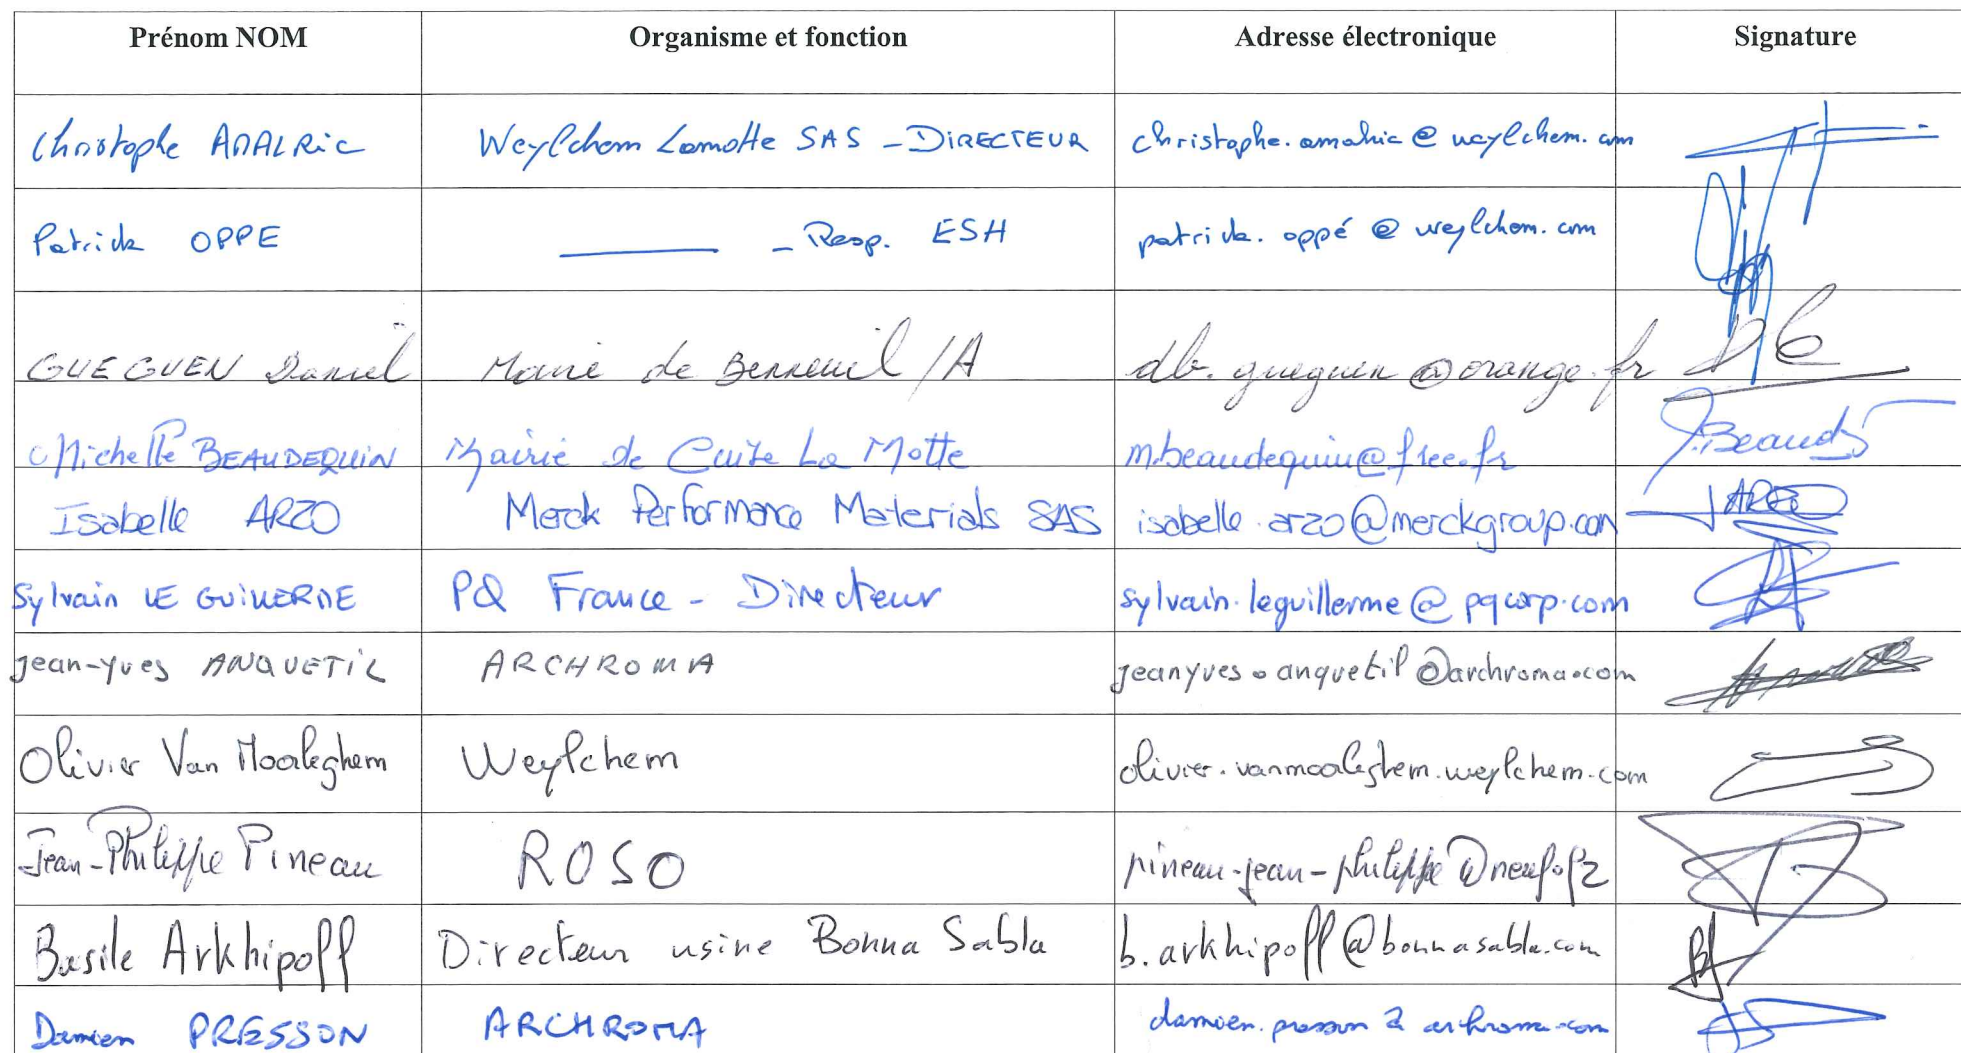 Prénom NOM Organisme et fonction Adresse électronique Signature
Christophe AMALRIC Weylchem Lamotte SAS - DIRECTEUR christophe.amalric@weylchem.com
Patrick OPPE ——— - Resp. ESH patrick.oppé@weylchem.com
GUEGUEN Daniel Mairie de Berneuil/A db.gueguen@orange.fr
Michelle BEAUDEQUIN Mairie de Cuise La Motte m.beaudequin@free.fr
Isabelle ARZO Merck Performance Materials SAS isabelle.arzo@merckgroup.com
Sylvain LE GUILLERME PQ France - Directeur sylvain.leguillerme@pqcorp.com
Jean-Yves ANQUETIL ARCHROMA jeanyves.anquetil@archroma.com
Olivier Van Moorleghem Weylchem olivier.vanmoorleghem.weylchem.com
Jean-Philippe Pineau ROSO pineau-jean-philippe@neuf.fr
Basile Arkhipoff Directeur usine Bonna Sabla b.arkhipoff@bonnasabla.com
Damien PRESSON ARCHROMA damien.presson @ archroma.com